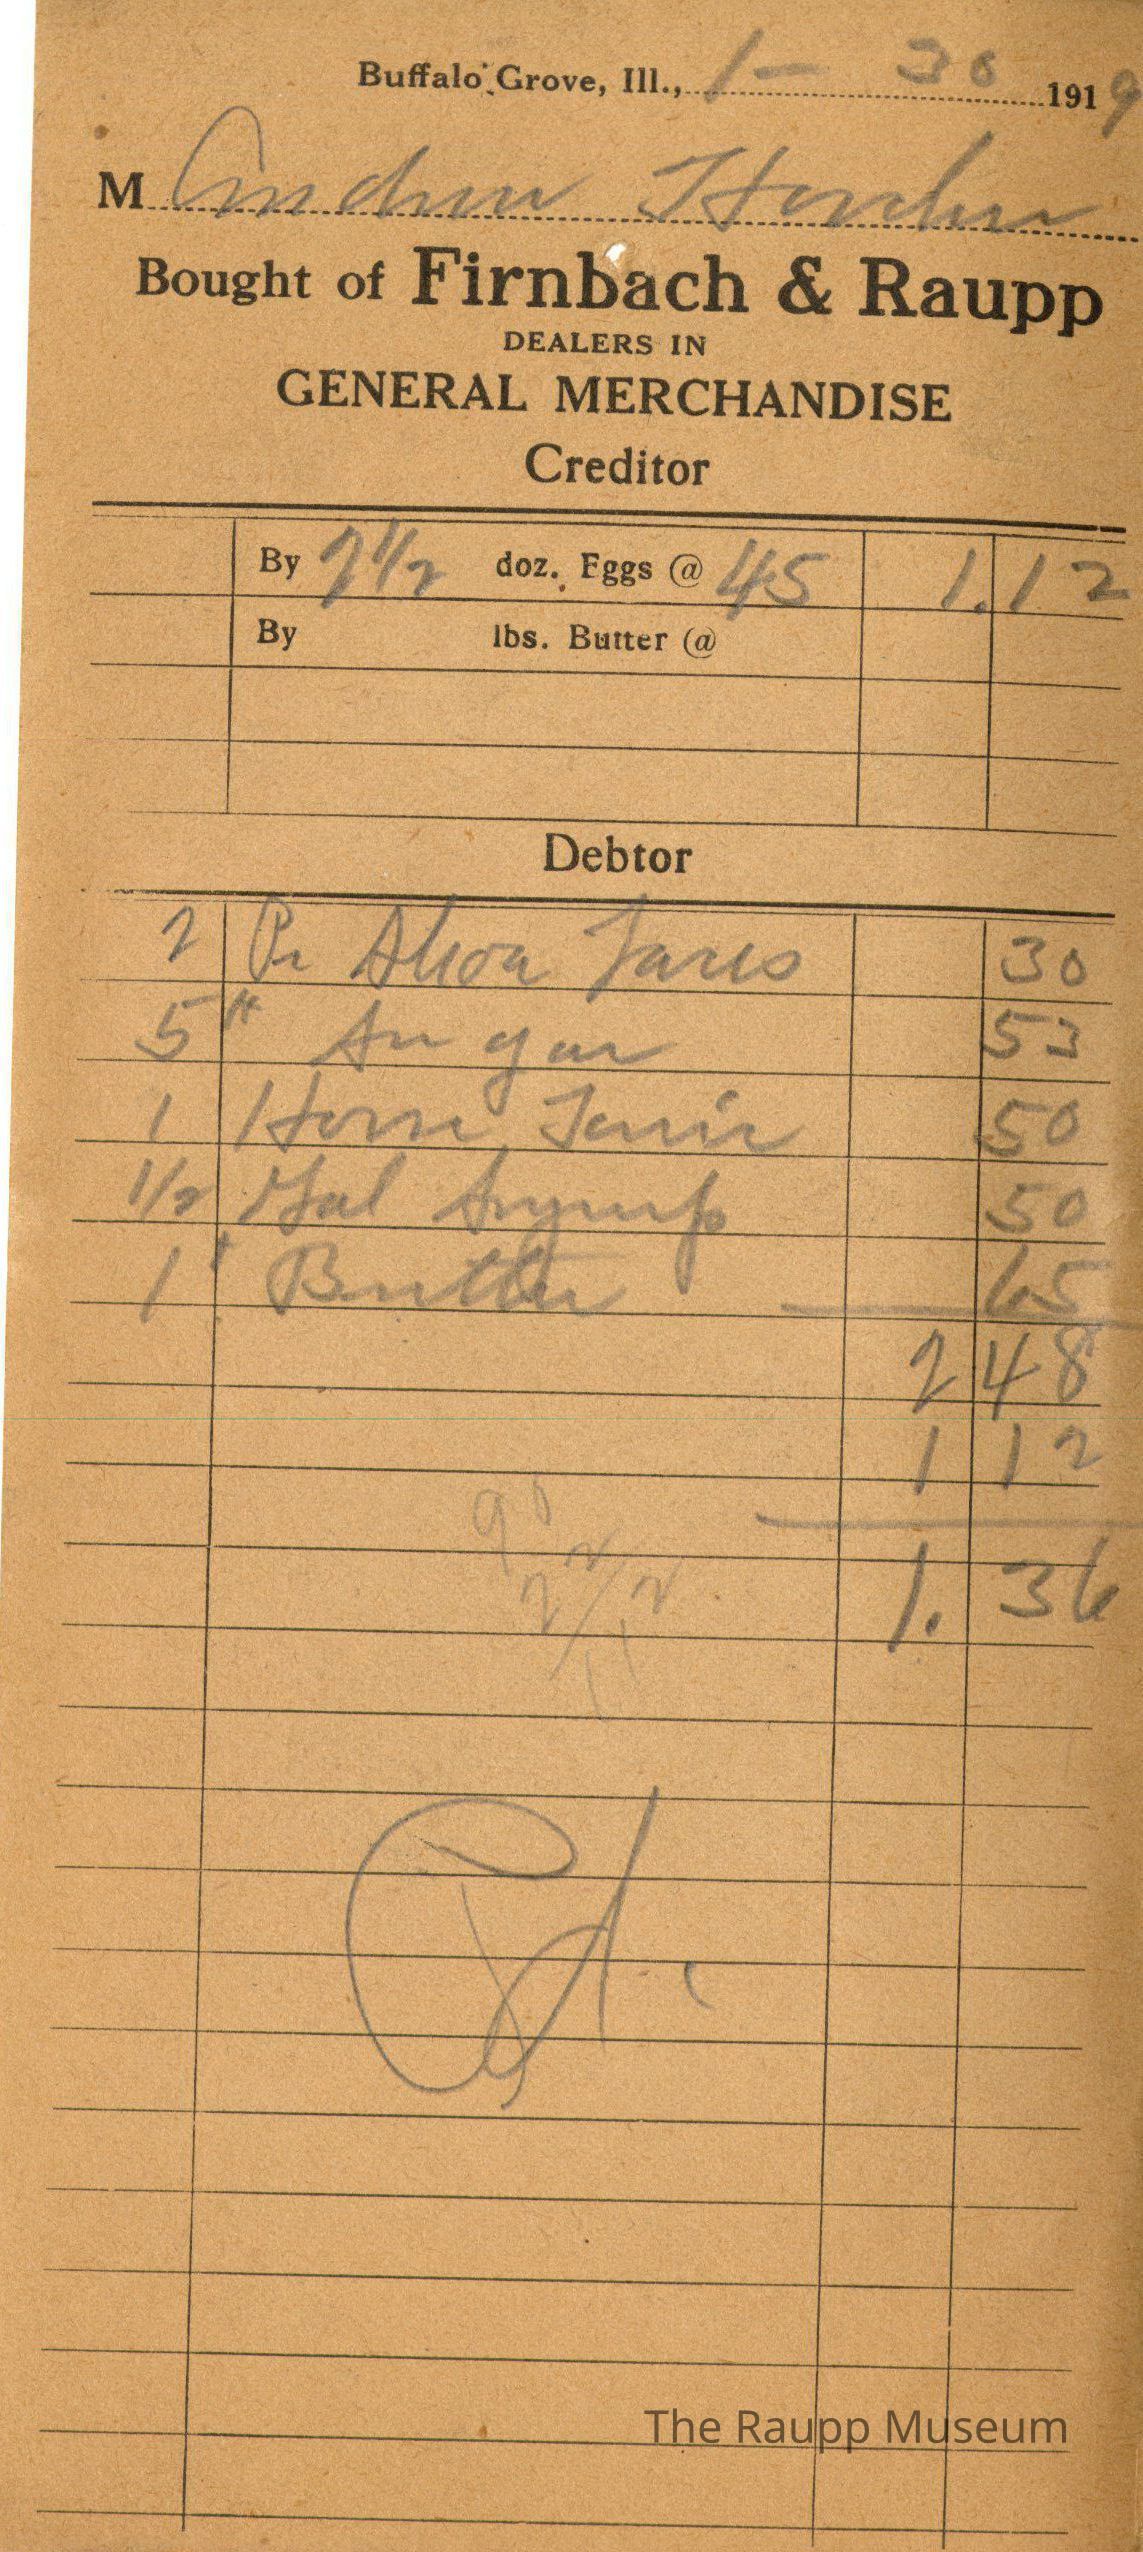 Buffalo Grove, Ill., 1 - 30 1919
M Andrew Horcher
Bought of Firnbach & Raupp
DEALERS IN
GENERAL MERCHANDISE
Creditor
By 2 1/2 doz. Eggs @ 45 1.12
By lbs. Butter @
Debtor
2 Pr Shoe Laces 30
5 # Sugar 53
1 Horse Tonic 50
1/2 Gal Syrup 50
1 # Butter 65
2 48
1 12
1. 36
The Raupp Museum